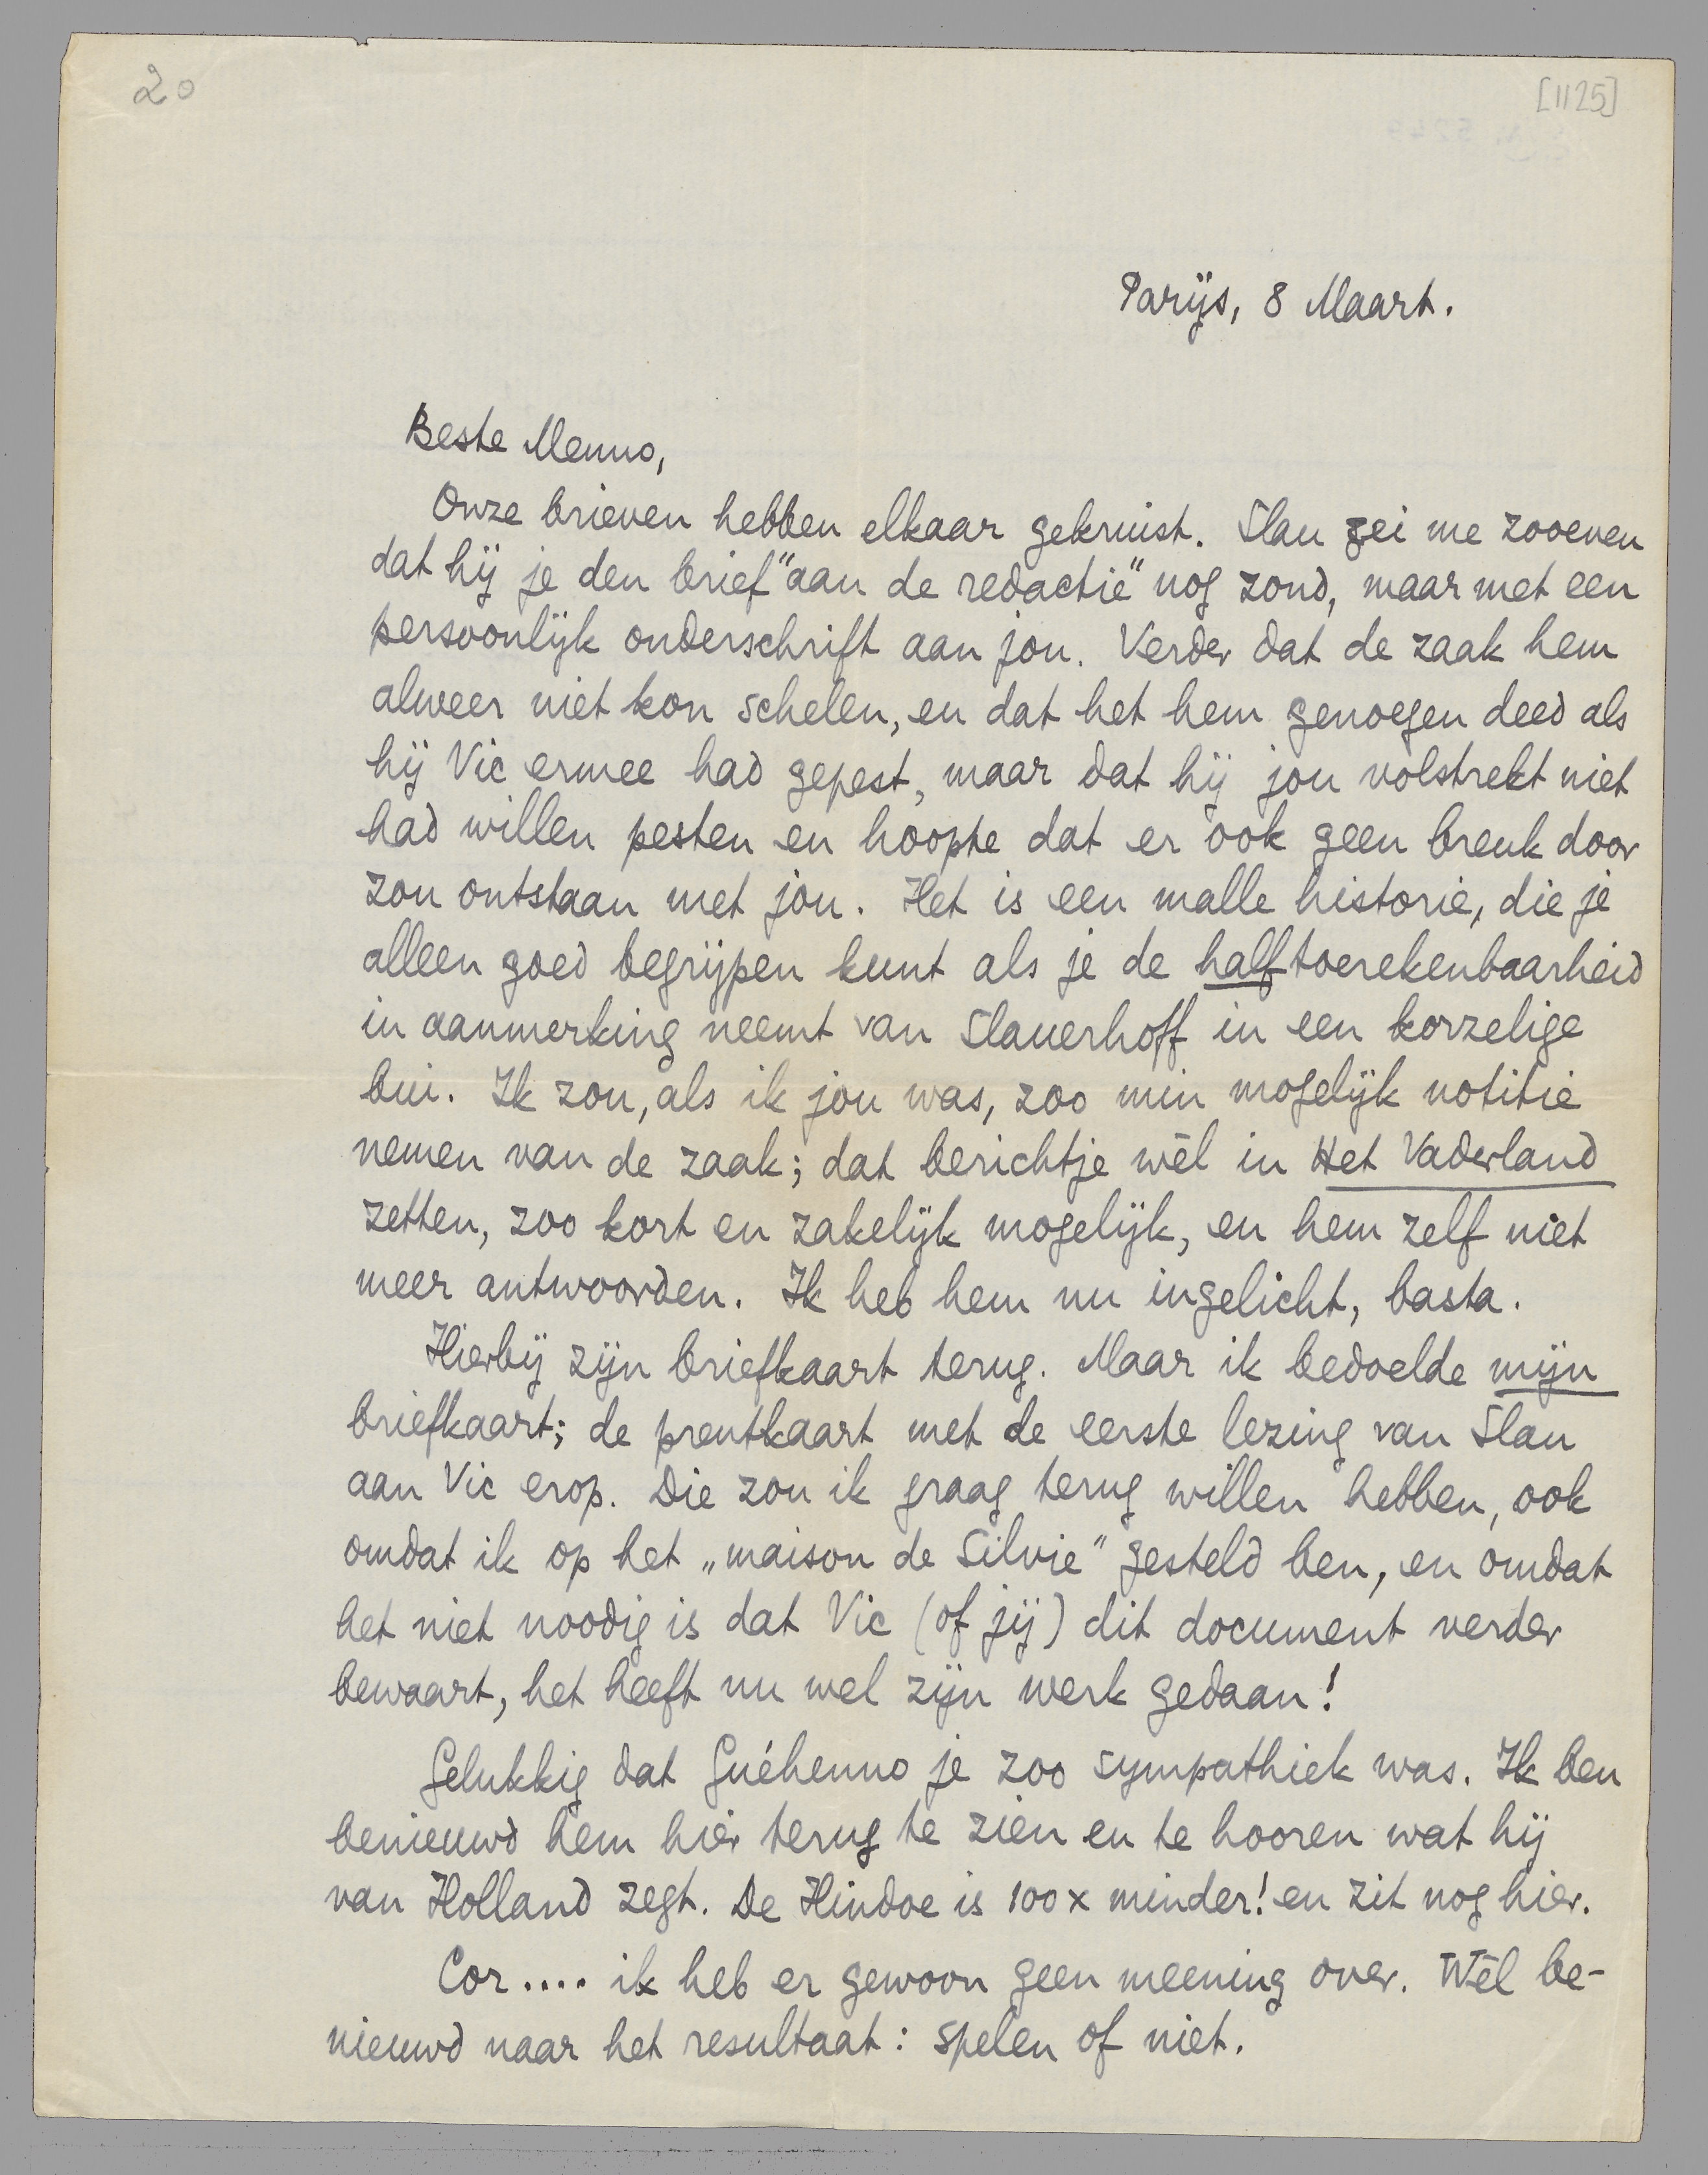 20
[1125]
Parijs, 8 Maart.
Beste Menno,
Onze brieven hebben elkaar gekruist. Slau zei me zooeven
dat hij je den brief "aan de redactie" nog zond, maar met een
persoonlijk onderschrift aan jou. Verder dat de zaak hem
alweer niet kon schelen, en dat het hem genoegen deed als
hij Vic ermee had gepest, maar dat hij jou volstrekt niet
had willen pesten en hoopte dat er ook geen breuk door
zou ontstaan met jou. Het is een malle historie, die je
alleen goed begrijpen kunt als je de halftoerekenbaarheid
in aanmerking neemt van Slauerhoff in een korzelige
bui. Ik zou, als ik jou was, zoo min mogelijk notitie
nemen van de zaak; dat berichtje wèl in Het Vaderland
zetten, zoo kort en zakelijk mogelijk, en hem zelf niet
meer antwoorden. Ik heb hem nu ingelicht, basta.
Hierbij zijn briefkaart terug. Maar ik bedoelde mijn
briefkaart; de prentkaart met de eerste lezing van Slau
aan Vic erop. Die zou ik graag terug willen hebben, ook
omdat ik op het „maison de Silvie" gesteld ben, en omdat
het niet noodig is dat Vic (of jij) dit document verder
bewaart, het heeft nu wel zijn werk gedaan!
Gelukkig dat Guéhenno je zoo sympathiek was. Ik ben
benieuwd hem hier terug te zien en te hooren wat hij
van Holland zegt. De Hindoe is 100 x minder! en zit nog hier.
Cor.... ik heb er gewoon geen meening over. Wèl be-
nieuwd naar het resultaat: spelen of niet.